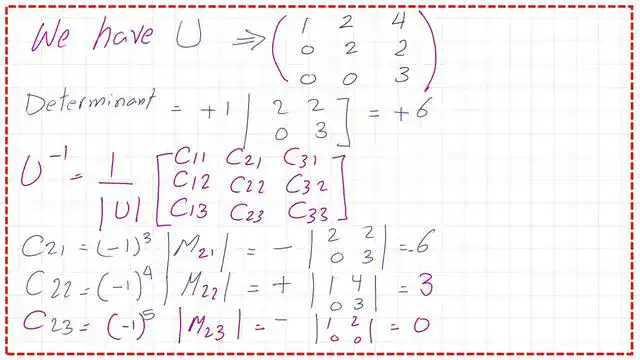 We have U ⇒ (1 2 4
0 2 2
0 0 3)
Determinant = +1 |2 2
0 3] = +6
U⁻¹ = 1/|U| [C11 C21 C31
C12 C22 C32
C13 C23 C33]
C21 = (-1)³ |M21| = - |2 2
0 3| = -6
C22 = (-1)⁴ |M22| = + |1 4
0 3| = 3
C23 = (-1)⁵ |M23| = - |1 2
0 0| = 0